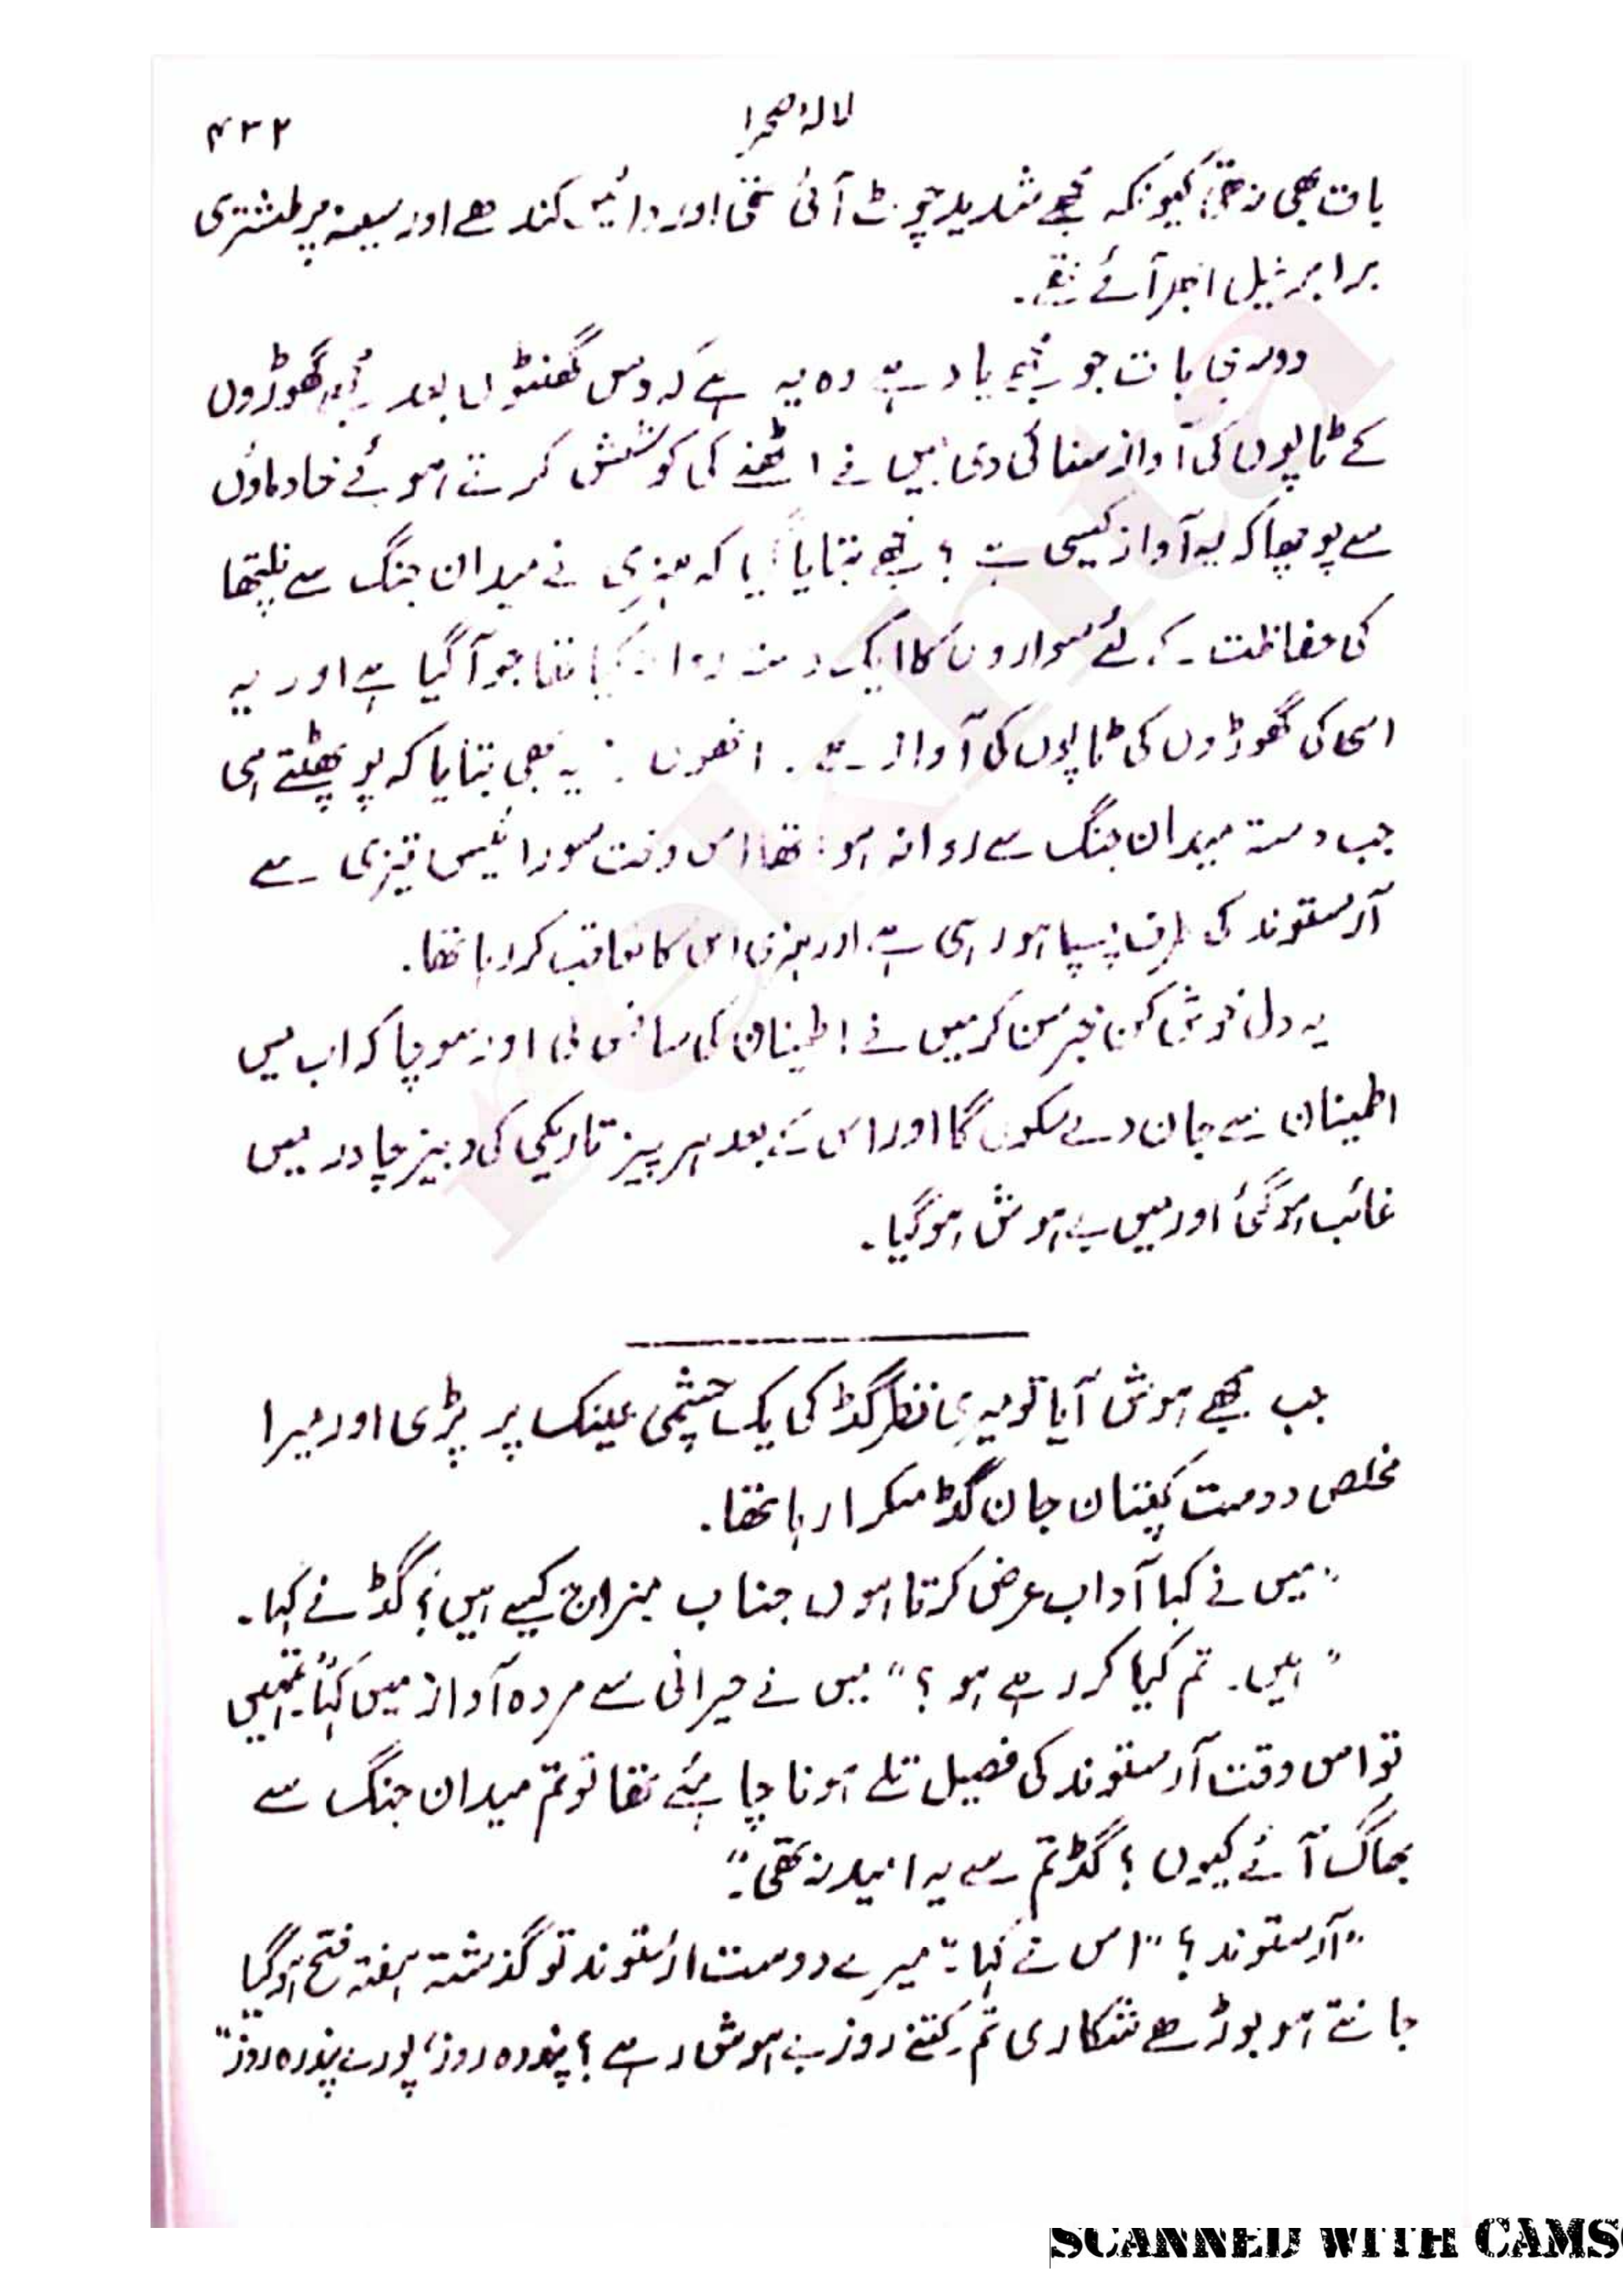 لالۂ صحرا
۴۳۲
بات بھی نہ تھی کیونکہ مجھے شدید چوٹ آئی تھی اور دائیں کندھے اور سینہ پر طشتری
برابر نیل ابھر آئے تھے۔
دوسری بات جو مجھے یاد ہے وہ یہ ہے کہ دس گھنٹوں بعد مجھے گھوڑوں
کے ٹاپوں کی آواز سنائی دی میں نے اٹھنے کی کوشش کرتے ہوئے خادماؤں
سے پوچھا کہ یہ آواز کیسی ہے ؟ مجھے بتایا گیا کہ ہنری نے میدان جنگ سے نلپتھا
کی حفاظت کے لئے سواروں کا ایک دستہ روانہ کیا تھا جو آگیا ہے اور یہ
اسی کی گھوڑوں کی ٹاپوں کی آواز ہے ۔ انھوں نے یہ بھی بتایا کہ پو پھٹتے ہی
جب دستہ میدان جنگ سے روانہ ہوا تھا اس وقت سورائیس تیزی سے
آرستوند کی طرف پسپا ہو رہی ہے اور ہنری اس کا تعاقب کر رہا تھا۔
یہ دل خوش کن خبر سن کر میں نے اطمینان کی سانس لی اور سوچا کہ اب میں
اطمینان سے جان دے سکوں گا اور اس کے بعد ہر چیز تاریکی کی دبیز چادر میں
غائب ہوگئی اور میں بے ہوش ہوگیا۔
جب مجھے ہوش آیا تو میری نظر گڈ کی یک چشمی عینک پر پڑی اور میرا
مخلص دوست کپتان جان گڈ مسکرا رہا تھا۔
"میں نے کہا آداب عرض کرتا ہوں جناب مزاج کیسے ہیں؟ گڈ نے کہا۔
"ہیں۔ تم کیا کر رہے ہو ؟" میں نے حیرانی سے مردہ آواز میں کہا "تمہیں
تو اس وقت آرستوند کی فصیل تلے ہونا چاہئے تھا تو تم میدان جنگ سے
بھاگ آئے کیوں ؟ گڈ تم سے یہ امید نہ تھی۔"
"آرستوند ؟" اس نے کہا۔ "میرے دوست ارستوند تو گذشتہ ہفتہ فتح ہوگیا
جانتے ہو بوڑھے شکاری تم کتنے روز بے ہوش رہے ؟ پندرہ روز، پورے پندرہ روز"
SCANNED WITH CAMS